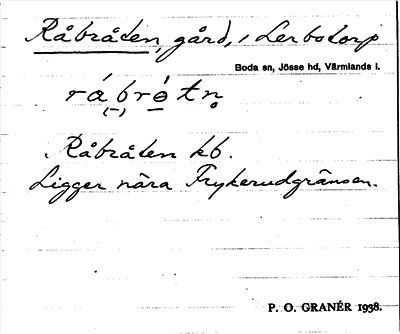 Råbråten, gård, i Lerbotorp
Boda sn, Jösse hd, Värmlands l.
Råbråten kb.
Ligger nära Frykerudgränsen.
P. O. GRANÉR 1938.